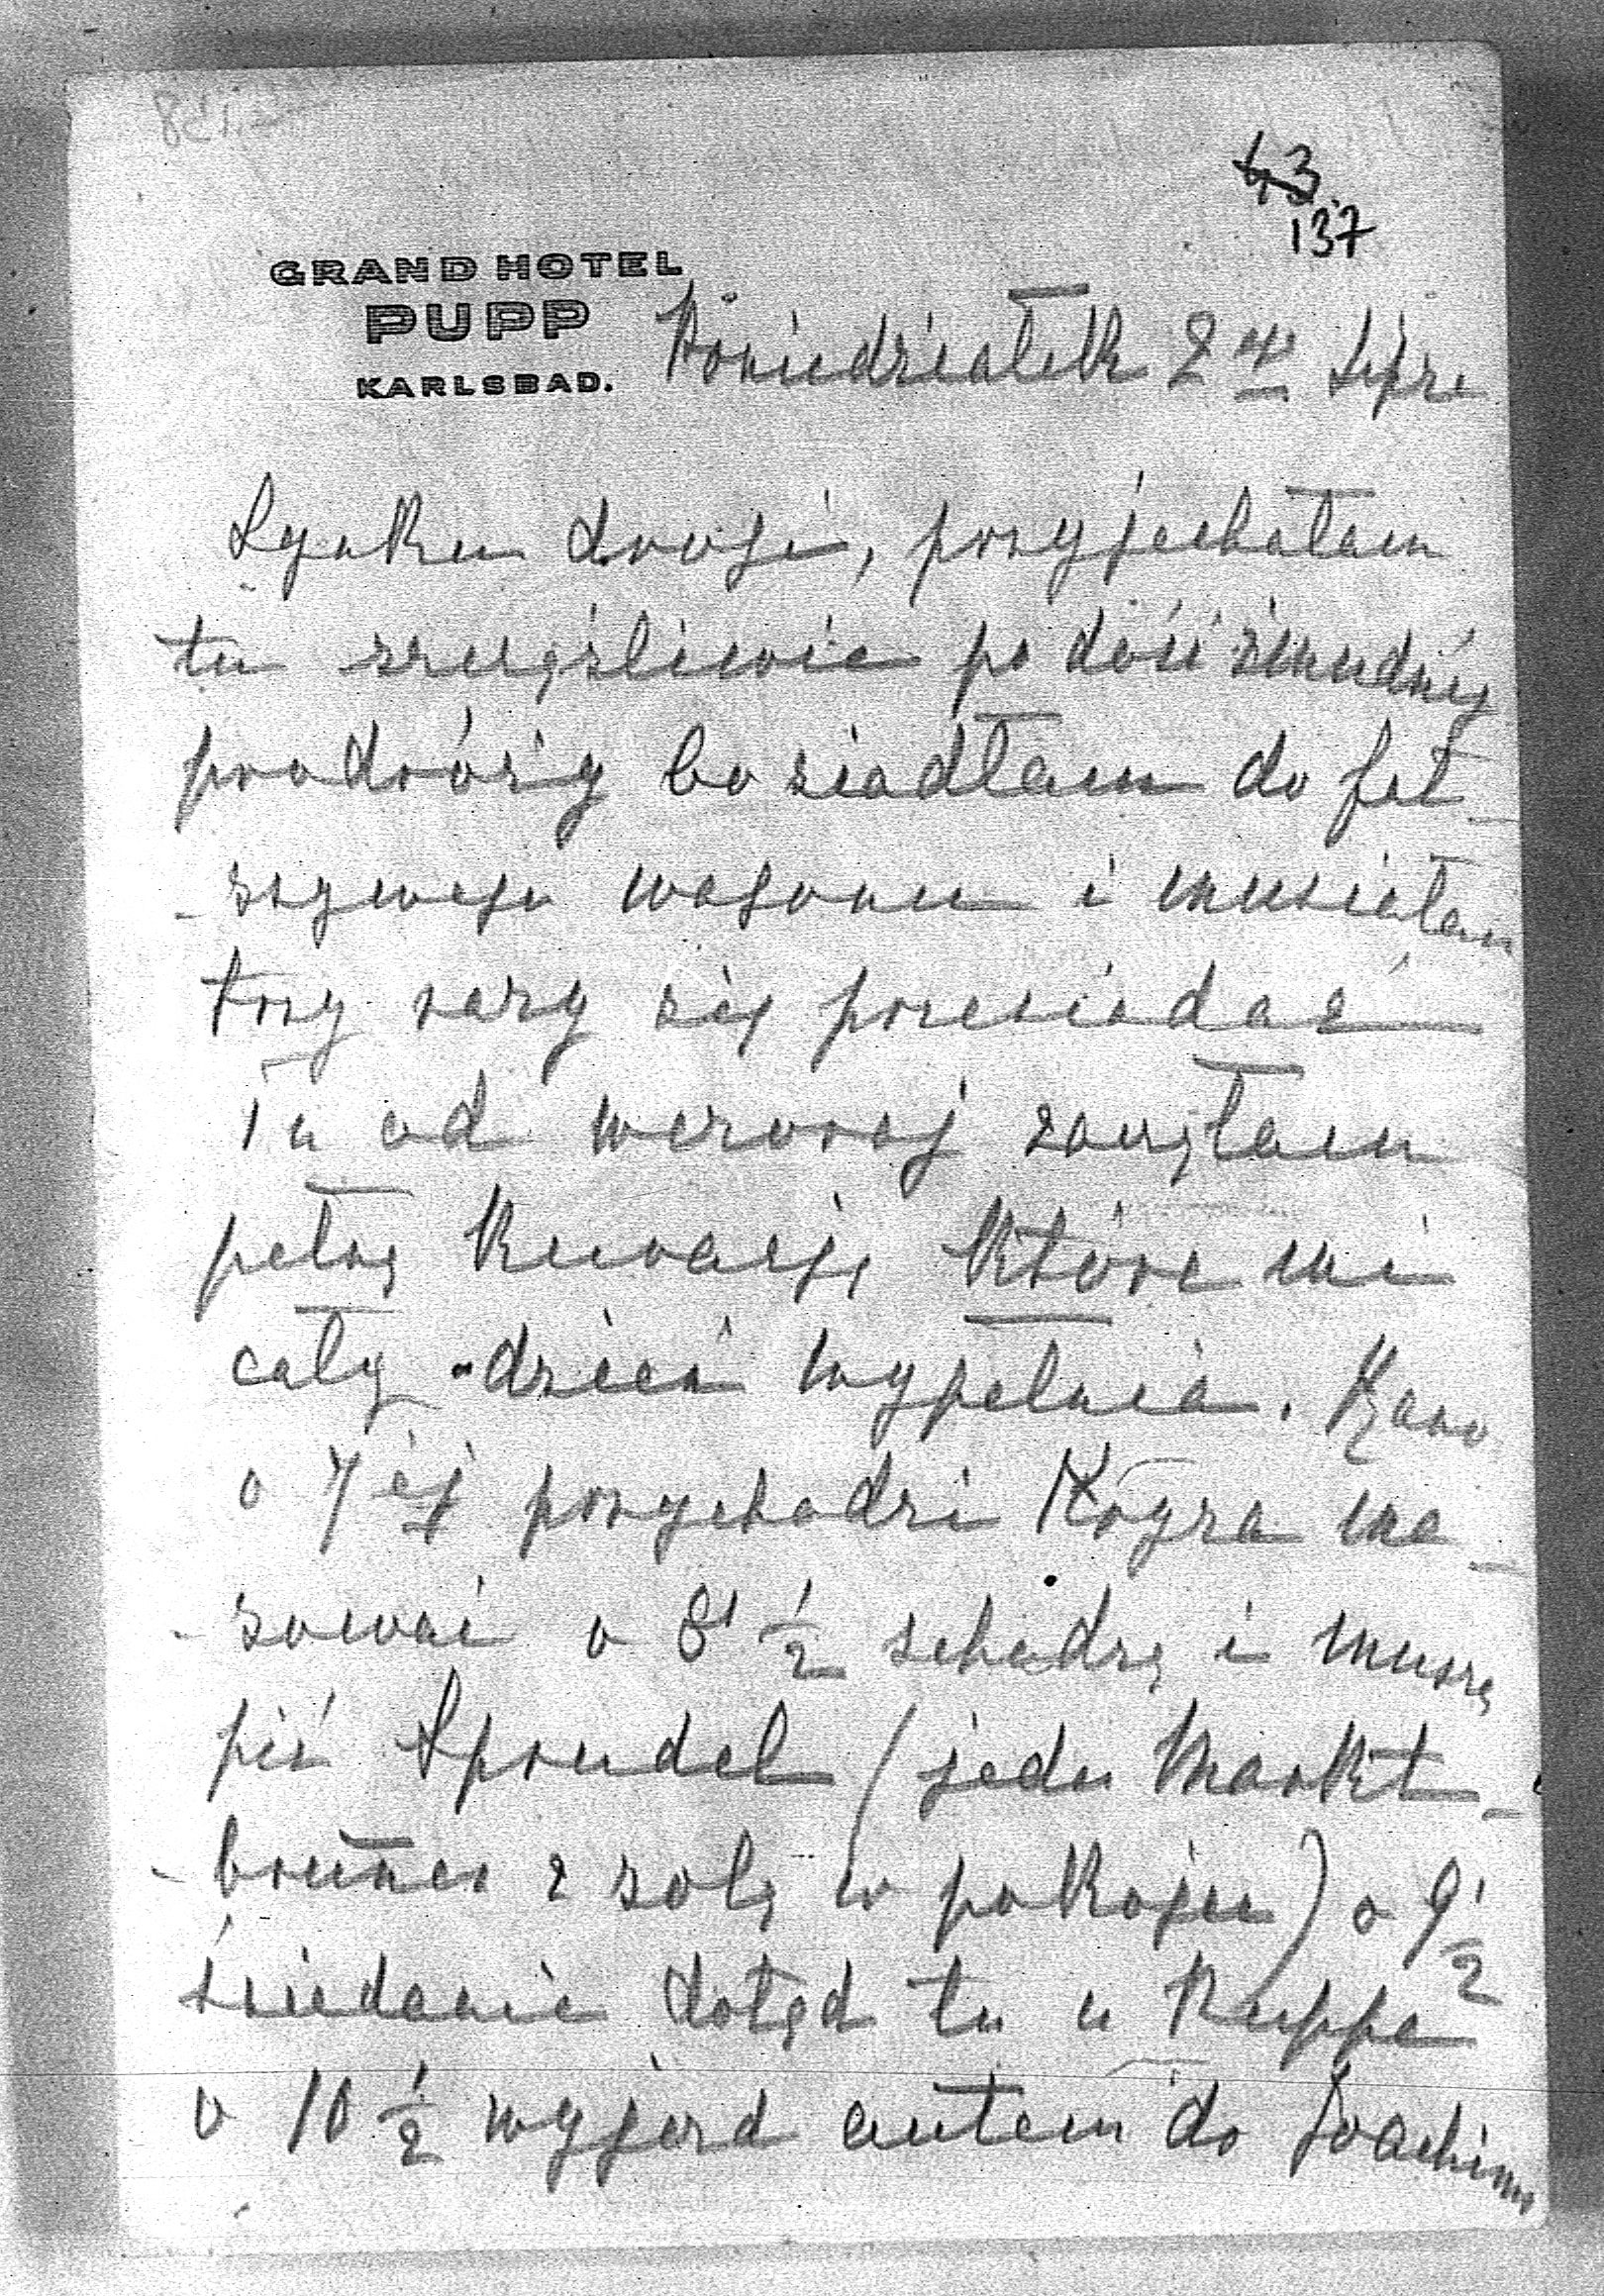 43
137
GRAND HOTEL
PUPP
KARLSBAD.
Poniedziałek 2go Lipca
Synku drogi, przyjechałam
tu szczęśliwie po dość żmudnej
podróży bo siadłam do fał_
_szywego wagonu i musiałam
trzy razy się przesiadać
Tu od wczoraj zaczęłam
pełną kurację które mi
cały dzień wypełnia. Rano
o 7ej przychodzi Kryza ma_
_sować o 8 1/2 schodzę i muszę
pić Sprudel (jeden Markt_
_brunen z solą w pokoju) o 9 1/2
śniadanie dotąd tu u Puppa
o 10 1/2 wyjazd autem do Joachims